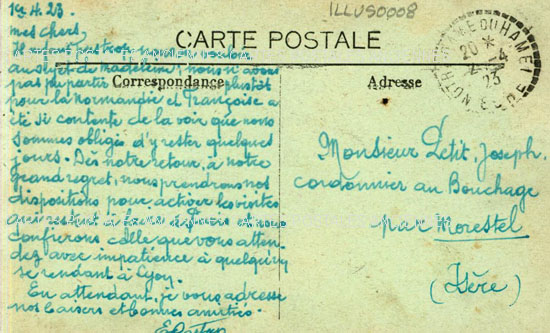 ILLUS0008
CARTE POSTALE
Correspondance
Adresse
NOTRE DAME DU HAMEL
20 *
2-4
23
EURE
1er 4. 23.
mes chers,
au sujet de madeleine, nous n'avons
pas pu partir plutôt
pour la normandie et Françoise a
été si contente de la voir que nous
sommes obligés d'y rester quelques
jours. Dès notre retour, à notre
grand regret, nous prendrons nos
dispositions pour activer les visites
confierons celle que vous atten-
dez avec impatience à quelqu'un
se rendant à Lyon.
En attendant, je vous adresse
nos baisers et bonnes amitiés.
Monsieur Petit, Joseph
cordonnier au Bouchage
par Morestel
(Isère)